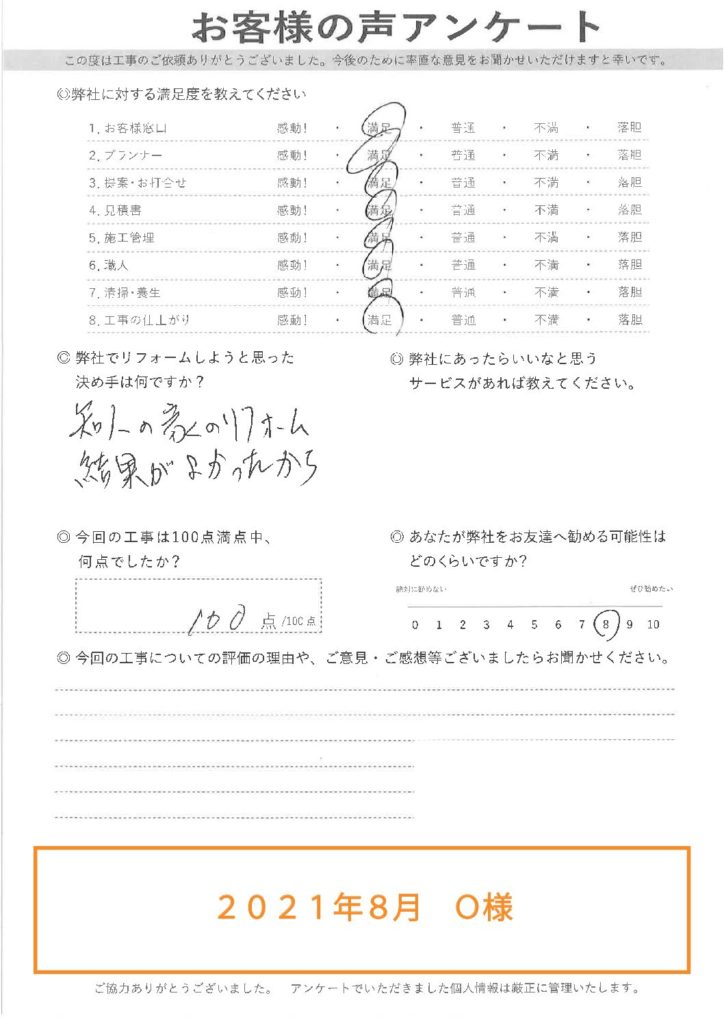 お客様の声アンケート
この度は工事のご依頼ありがとうございました。今後のために率直な意見をお聞かせいただけますと幸いです。
◎弊社に対する満足度を教えてください
1. お客様窓口 感動! ・ 満足 ・ 普通 ・ 不満 ・ 落胆
2. プランナー 感動! ・ 満足 ・ 普通 ・ 不満 ・ 落胆
3. 提案・お打合せ 感動! ・ 満足 ・ 普通 ・ 不満 ・ 落胆
4. 見積書 感動! ・ 満足 ・ 普通 ・ 不満 ・ 落胆
5. 施工管理 感動! ・ 満足 ・ 普通 ・ 不満 ・ 落胆
6. 職人 感動! ・ 満足 ・ 普通 ・ 不満 ・ 落胆
7. 清掃・養生 感動! ・ 満足 ・ 普通 ・ 不満 ・ 落胆
8. 工事の仕上がり 感動! ・ 満足 ・ 普通 ・ 不満 ・ 落胆
◎ 弊社でリフォームしようと思った
決め手は何ですか？
知人の家のリフォーム
結果がよかったから
◎ 弊社にあったらいいなと思う
サービスがあれば教えてください。
◎ 今回の工事は100点満点中、
何点でしたか？
100 点 /100点
◎ あなたが弊社をお友達へ勧める可能性は
どのくらいですか？
絶対に勧めない ぜひ勧めたい
0 1 2 3 4 5 6 7 8 9 10
◎ 今回の工事についての評価の理由や、ご意見・ご感想等ございましたらお聞かせください。
２０２１年８月　O様
ご協力ありがとうございました。 アンケートでいただきました個人情報は厳正に管理いたします。